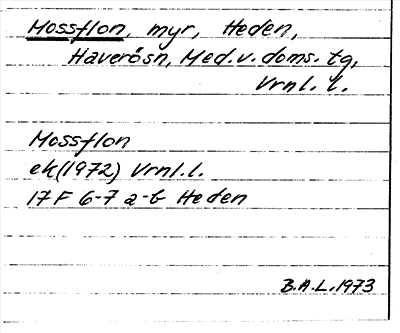 Mossflon, myr, Heden,
Haverösn, Med.v. doms. tg,
Vrnl. l.
Mossflon
ek(1972) Vrnl.l.
17 F 6-7 a-b Heden
B.A.L. 1973